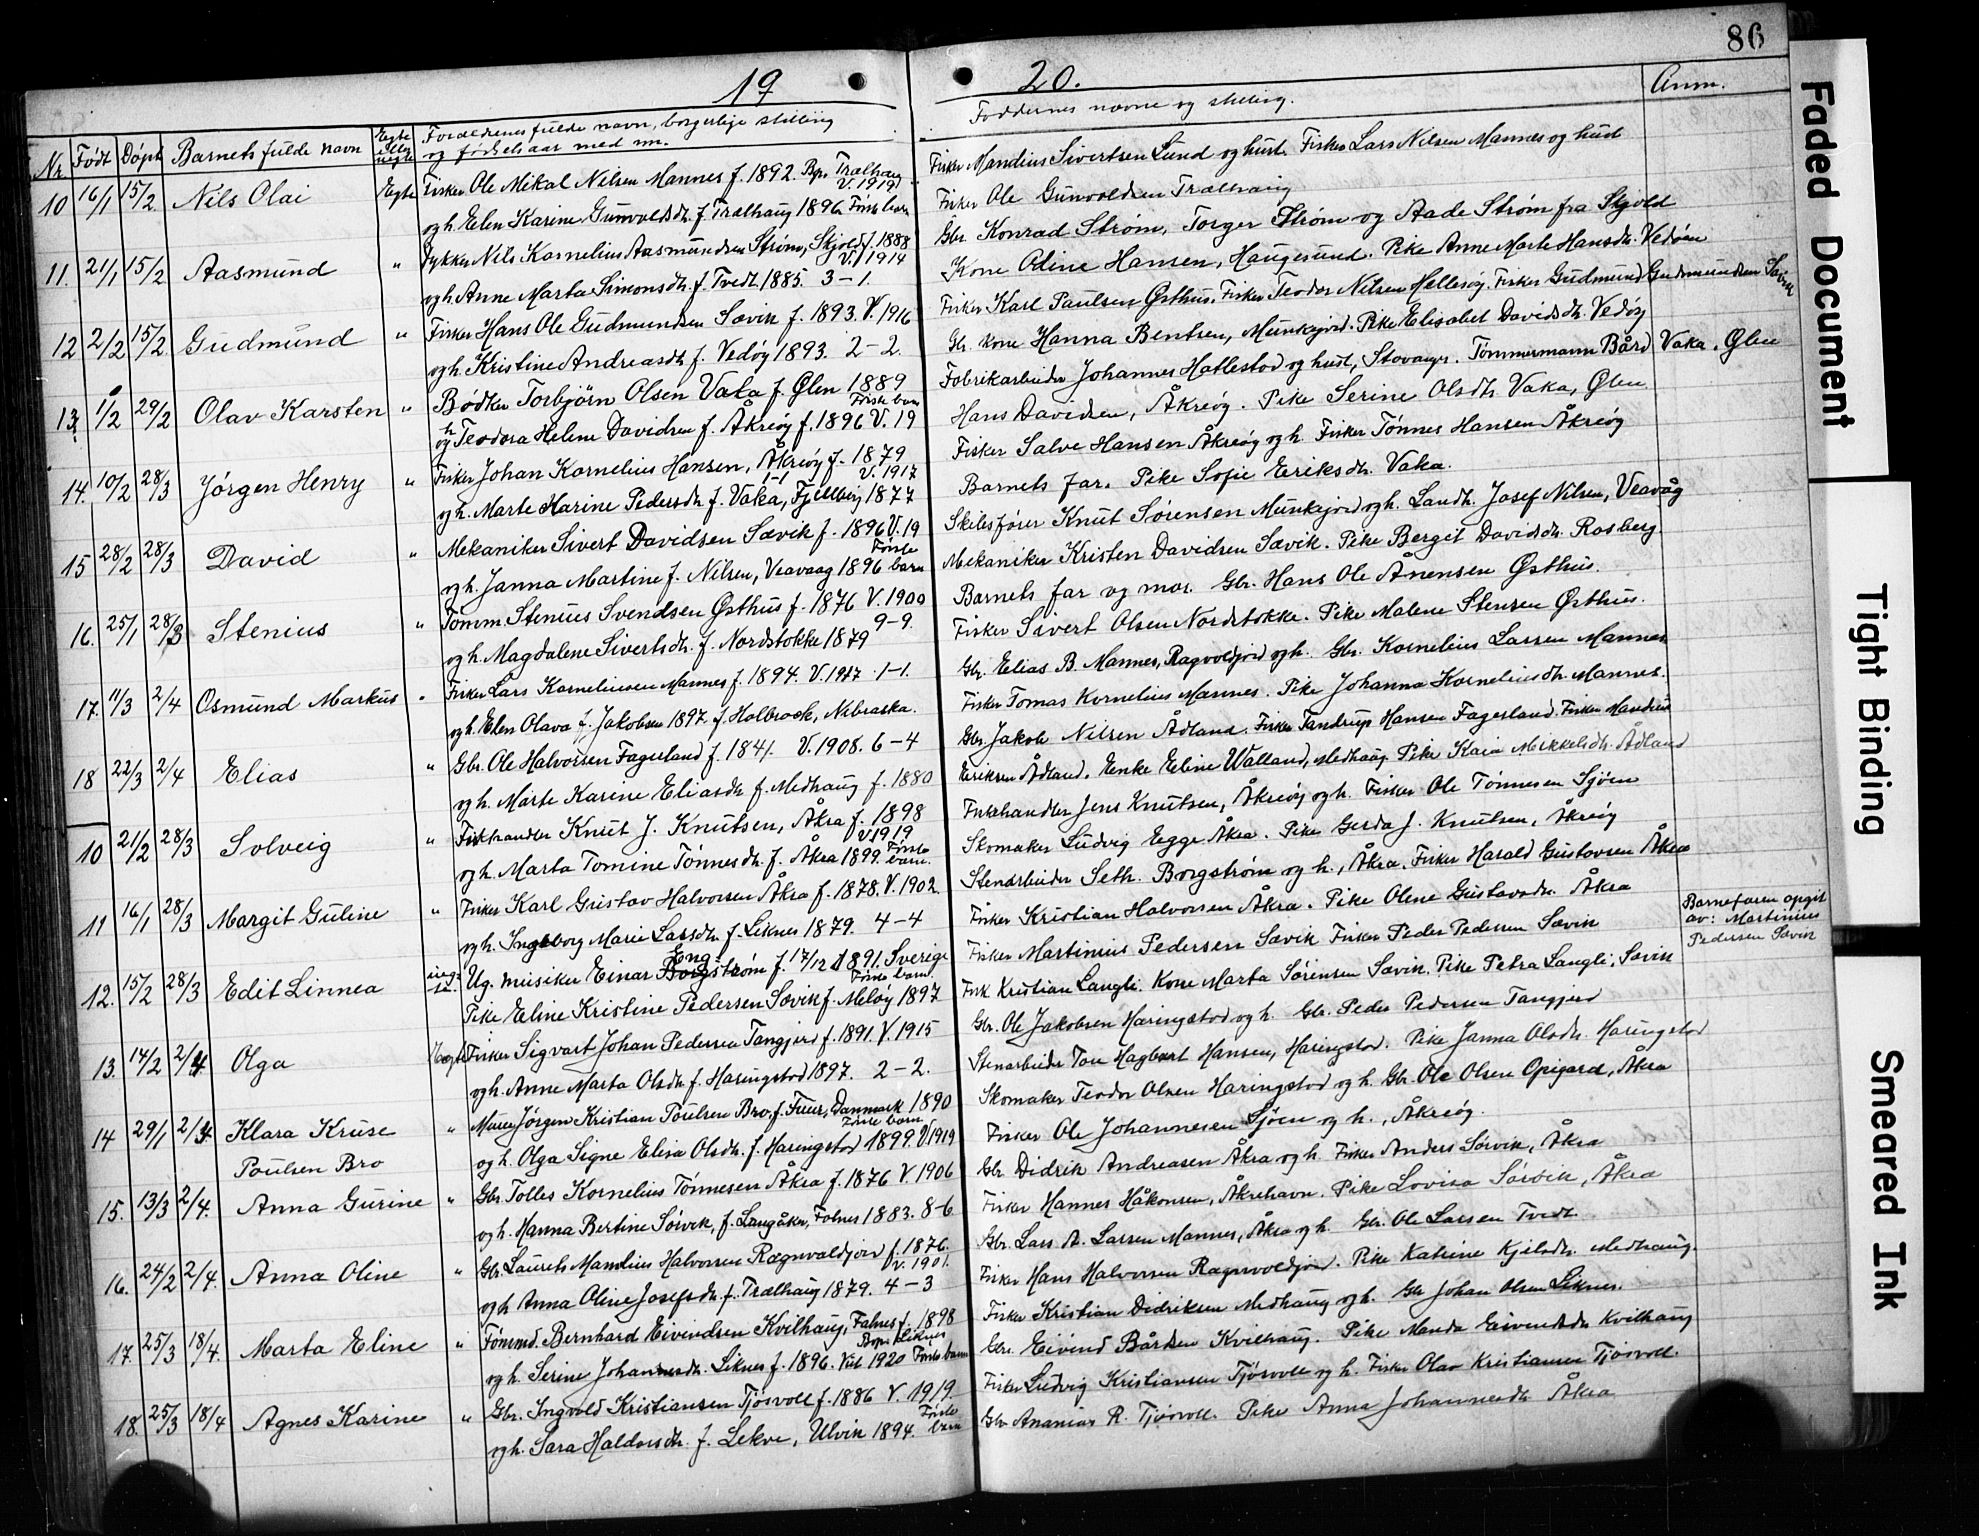 86
19 20.
Nr. Født Døpt Barnets fulde navn Egte eller uegte Forældrenes fulde navn, borgerlige stilling
og fødselsaar med mn.
Faddernes navne og stilling. Anm.
10 16/1 15/2. Nils Olai Egte Fisker Ole Mikal Nilsen Mannes f. 1892. Bps Trælhaug V. 1919
Fisker Mandius Sivertsen Lund og hust. Fisker Lars Nilsen Mannes og hust
og h. Elen Karine Gunvaldsdt. f. Trælhaug 1896 Første barn
Fisker Ole Gunvaldsen Trælhaug
11. 21/1 15/2 Aasmund " Nils Kornelius Aasmundsen Strøm, Skjold f. 1888 V. 1914
Gbr. Konrad Strøm, Torger Strøm og Aade Strøm fra Skjold
og h. Anne Marta Simonsdt. f. Tvedt 1885. 3-1.
Kone Oline Hansen, Haugesund. Pike Anne Marte Hansdt. Vedøen
12 2/2 15/2. Gudmund " Fisker Hans Ole Gudmundsen Sævik f. 1893. V. 1916
Fisker Karl Paulsen Østhus. Fisker Teodor Nilsen Hellesøy. Fisker Gudmund Gudmundsen Sævik
og h. Kristine Andreasdt f. Vedøy 1893. 2-2.
Gbr. kone Hanna Bentsen, Munkejord. Pike Elisabet Davidsdt. Vedøy
13. 1/2 29/2 Olav Karsten " Bødker Torbjörn Olsen Vaka f. Ølen 1889 Første barn
Fabrikarbeider Johannes Hatlestad og hust, Stavanger. Tømmermann Bård Vaka. Ølen
og h Teodora Helene Davidsen f. Åkreøy f. 1896 V. 19
Hans Davidsen, Åkreøy. Pike Serine Olsdt. Vaka, Ølen
14. 10/2 28/3 Jørgen Henry " Fisker Johan Kornelius Hansen, Åkreøy f. 1879 V. 1917
Fisker Salve Hansen Åkreøy og h. Fisker Tønnes Hansen Åkreøy
og h. Marte Karine Pedersdt f. Vaka, Fjellberg 1877 1-1
Barnets far. Pike Sofie Eriksdt. Vaka.
15 28/2 28/3 David " Mekaniker Sivert Davidsen Sævik f. 1896 V. 19
Skibsfører Knut Sørensen Munkejord og h. Landh. Josef Nilsen, Veavåg
og h. Janna Martine f. Nilsen, Veavaag 1896 Første barn
Mekaniker Kristen Davidsen Sævik. Pike Bergit Davidsdt. Rosberg.
16. 25/1 28/3 Stenius " Tømm. Stenius Svendsen Østhus f. 1876 V. 1900
Barnets far og mor. Gbr. Hans Ole Ånensen Østhus.
og h. Magdalene Sivertsdt. f. Nordstokke 1879 9-9.
Fisker Sivert Olsen Nordstokke. Pike Malene Stensen Østhus.
17. 11/3 2/4 Osmund Markus " Fisker Lars Korneliussen Mannes f. 1894. V. 1917 1-1.
Gbr. Elias B. Mannes, Ragvoldjord og h. Gbr. Kornelius Larsen Mannes
og h. Elen Olava f. Jakobsen 1897. f. Holbrook, Nebraska.
Fisker Tomas Kornelius Mannes. Pike Johanna Korneliusdt. Mannes.
18 22/3 2/4 Elias " Gbr. Ole Halvorsen Fagerland f. 1841. V. 1908. 6-4
Gbr. Jakob Nilsen Ådland. Fisker Tandrup Hansen Fagerland. Fisker Mandius
og h. Marte Karine Eliasdt f. Medhaug f. 1880
Eriksen Ådland. Enke Eline Walland, Medhaug. Pike Kaia Mikkelsdt. Ådland
10 21/2 28/3 Solveig " Fiskhandler Knut J. Knutsen, Åkra f. 1898 V 1919
Fiskehandler Jens Knutsen, Åkreøy og h. Fisker Ole Tønnesen Sjöen
og h. Marta Tomine Tønnesdt. f. Åkra 1899. Første barn.
Skomaker Ludvig Egge Åkra. Pike Gerda J. Knutsen, Åkreøy
11 16/1 28/3 Margit Guline " Fisker Karl Gustav Halvorsen Åkra f. 1878. V. 1902.
Stenarbeider Seth. Borgstrøm og h., Åkra. Fisker Harald Gustavsen Åkra
og h. Ingeborg Marie Larsdt. f. Liknes 1879. 4-4
Fisker Kristian Halvorsen Åkra. Pike Olene Gustavsdt. Åkra
Barnefaren opgit
av: Martinius
Pedersen Sævik
12. 15/2 28/3 Edit Linnea ueg-te. Ug. musiker Einar Engstrøm f. 17/12 1891. Sverige Første barn.
Fisker Martinius Pedersen Sævik Fisker Peder Pedersen Sævik
Pike Eline Kristine Pedersen Sævik f. Meløy 1897
Fisk. Kristian Langli. Kone Marta Sørensen Sævik. Pike Petra Langli, Sævik
13. 14/2 2/4 Olga Egte Fisker Sigvart Johan Pedersen Tangjerd f. 1891. V. 1915
Gbr. Ole Jakobsen Haringstad og h. Gbr. Peder Pedersen Tangjerd
og h. Anne Marta Olsdt. f. Haringstad 1897. 2-2.
Stenarbeider Tore Hagbart Hansen, Haringstad. Pike Janna Olsdt. Haringstad
14 29/1 2/4 Klara Kruse " Murer Jørgen Kristian Poulsen Bro, f. Fuur, Danmark 1890 Første barn
Skomaker Teodor Olsen Haringstad og h. Gbr. Ole Olsen Opigard, Åkra
Poulsen Bro og h. Olga Signe Elisa Olsdt. f. Haringstad 1899. V 1919
Fisker Ole Johannesen Sjöen og h., Åkreøy.
15. 13/3 2/4. Anna Gurine " Gbr. Tolles Kornelius Tønnesen Åkra f. 1876 V. 1906
Gbr. Didrik Andreasen Åkra og h. Fisker Anders Sörvik, Åkra
og h. Hanna Bertine Sörvik, f. Langåker, Falnes 1883. 8-6
Fisker Hannes Håkonsen, Åkrehavn. Pike Lovisa Sörvik, Åkra
16. 24/2 2/4. Anna Oline " Gbr. Laurits Mandius Halvorsen Ragnvaldjord f. 1876. V. 1901.
Gbr. Lars A. Larsen Mannes, Åkra og h. Gbr. Ole Larsen Tvedt
og h Anna Oline Josefsdt. f. Trælhaug 1879. 4-3
Fisker Hans Halvorsen Ragnvoldjord. Pike Katrine Kjelsdt. Medhaug.
17. 25/3 18/4. Marta Eline " Tømmd. Bernhard Eivindsen Kvilhaug, Falnes f. 1898 Bops Liknes
Fisker Kristian Didriksen Medhaug og h. Gbr Johan Olsen Liknes.
og h. Serine Johannesdt. Liknes f. 1896. Viet 1920 Første barn
Gbr. Eivind Bårdsen Kvilhaug. Pike Manda Eivindsdt. Kvilhaug
18. 25/3 18/4 Agnes Karine " Gbr. Ingvald Kristiansen Tjösvoll f. 1886 V. 1919.
Fisker Ludvig Kristiansen Tjösvoll og h. Fisker Olav Kristiansen Tjösvoll.
og h. Sara Haldorsdt. f. Lekve, Ulvik 1894. Første barn
Gbr Ananias R. Tjösvoll. Pike Anna Johannesdt. Åkra
Faded Document
Tight Binding
Smeared Ink